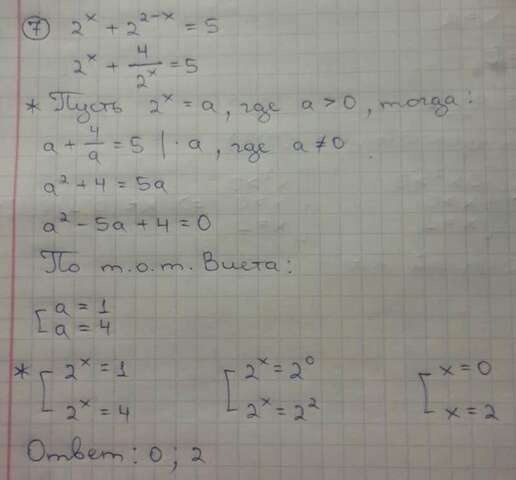 ⑦ 2^x + 2^(2-x) = 5
2^x + 4/2^x = 5
* Пусть 2^x = a, где a > 0, тогда:
a + 4/a = 5 | · a, где a ≠ 0.
a² + 4 = 5a
a² - 5a + 4 = 0
По т.о.т. Виета:
[ a = 1
a = 4
* [ 2^x = 1 [ 2^x = 2^0 [ x = 0
2^x = 4 2^x = 2^2 x = 2
Ответ: 0; 2